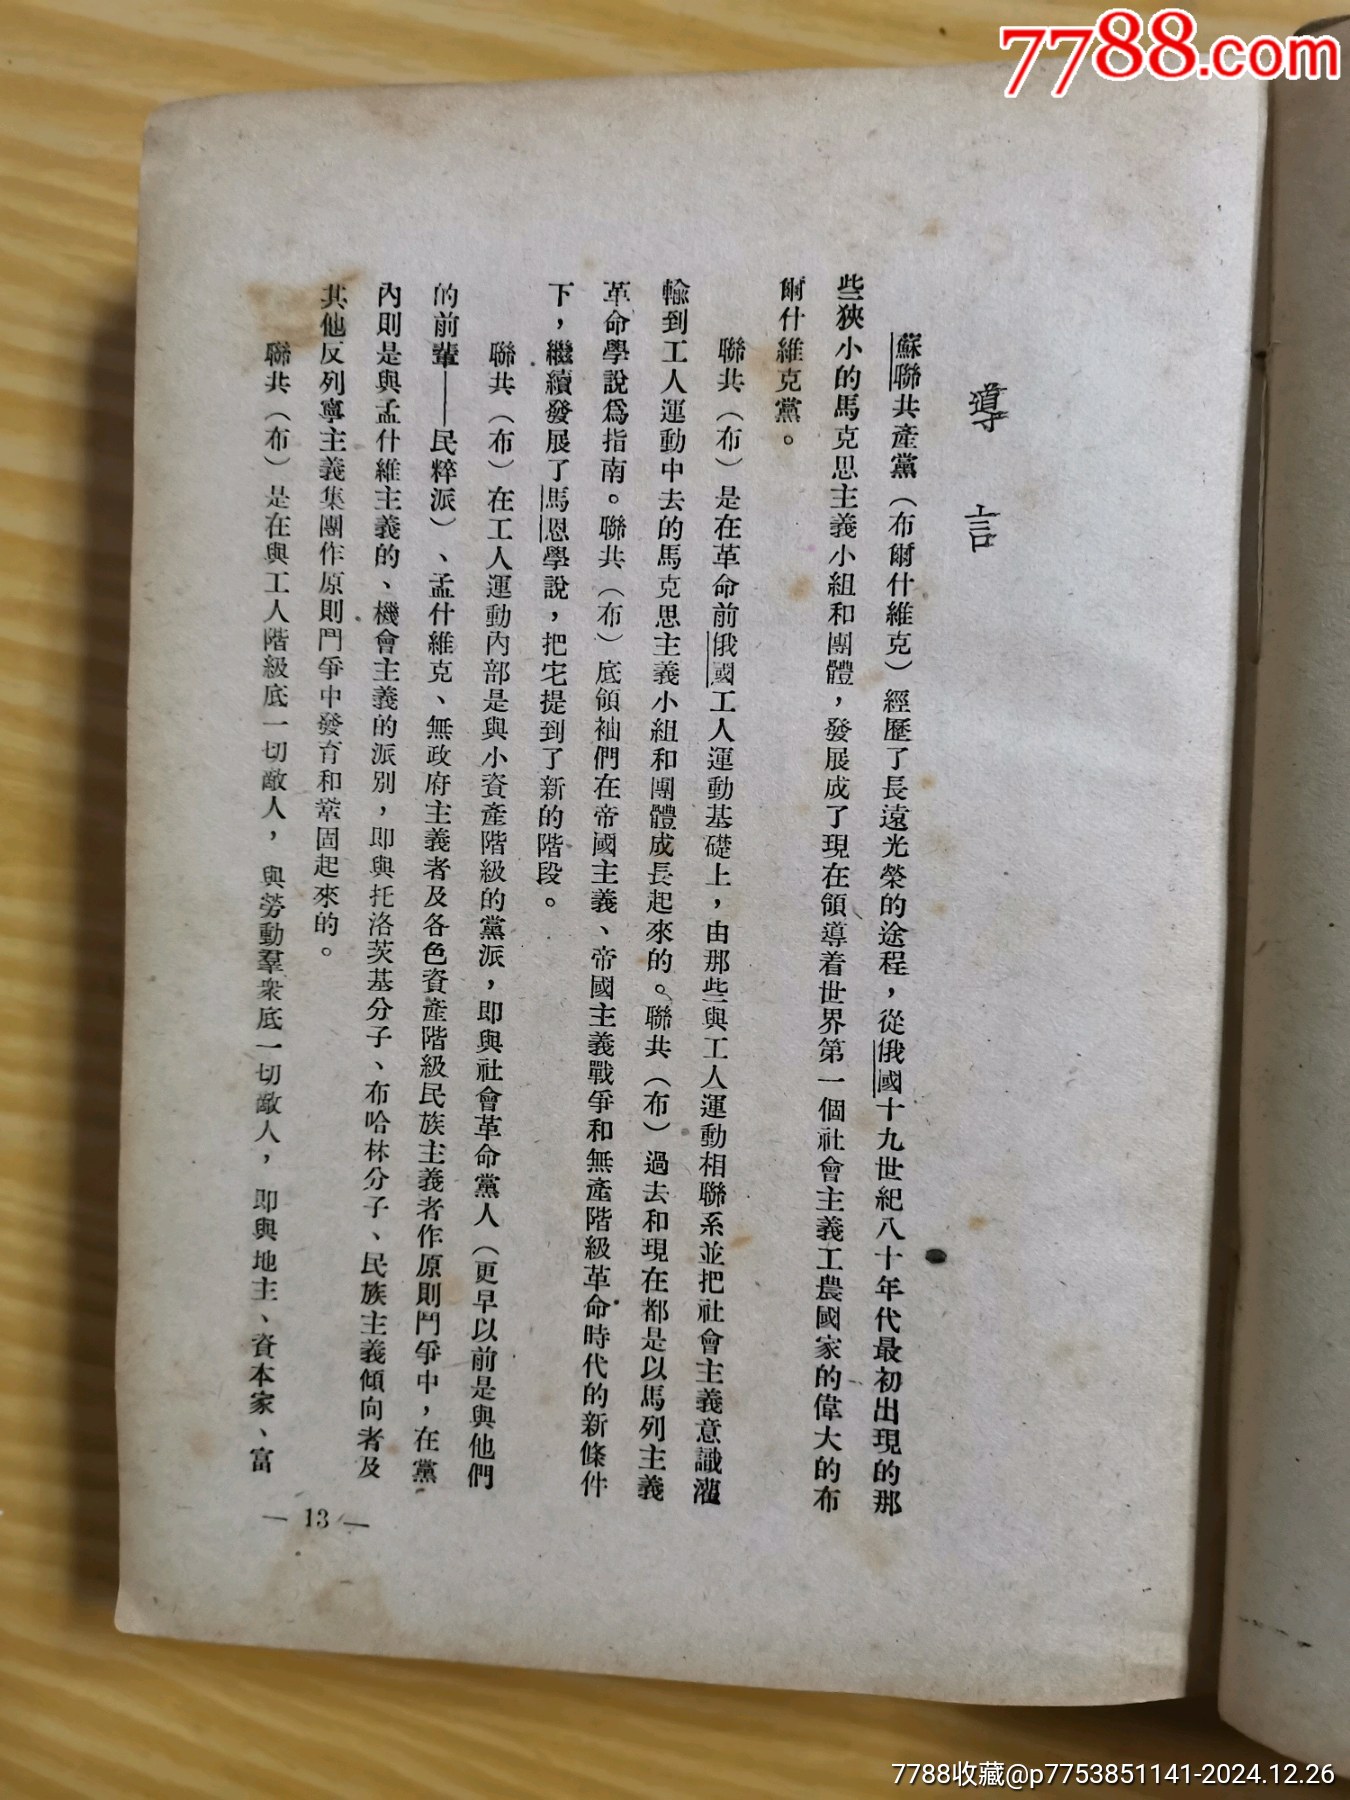 7788.com
導言
蘇聯共產黨（布爾什維克）經歷了長遠光榮的途程，從俄國十九世紀八十年代最初出現的那
些狹小的馬克思主義小組和團體，發展成了現在領導着世界第一個社會主義工農國家的偉大的布
爾什維克黨。
聯共（布）是在革命前俄國工人運動基礎上，由那些與工人運動相聯系並把社會主義意識灌
輸到工人運動中去的馬克思主義小組和團體成長起來的。聯共（布）過去和現在都是以馬列主義
革命學說爲指南。聯共（布）底領袖們在帝國主義、帝國主義戰爭和無產階級革命時代的新條件
下，繼續發展了馬恩學說，把它提到了新的階段。
聯共（布）在工人運動內部是與小資產階級的黨派，即與社會革命黨人（更早以前是與他們
的前輩——民粹派）、孟什維克、無政府主義者及各色資產階級民族主義者作原則鬥爭中，在黨
內則是與孟什維主義的、機會主義的派別，即與托洛茨基分子、布哈林分子、民族主義傾向者及
其他反列寧主義集團作原則鬥爭中發育和鞏固起來的。
聯共（布）是在與工人階級底一切敵人，與勞動羣衆底一切敵人，即與地主、資本家、富
— 13 —
7788收藏@p7753851141-2024.12.26